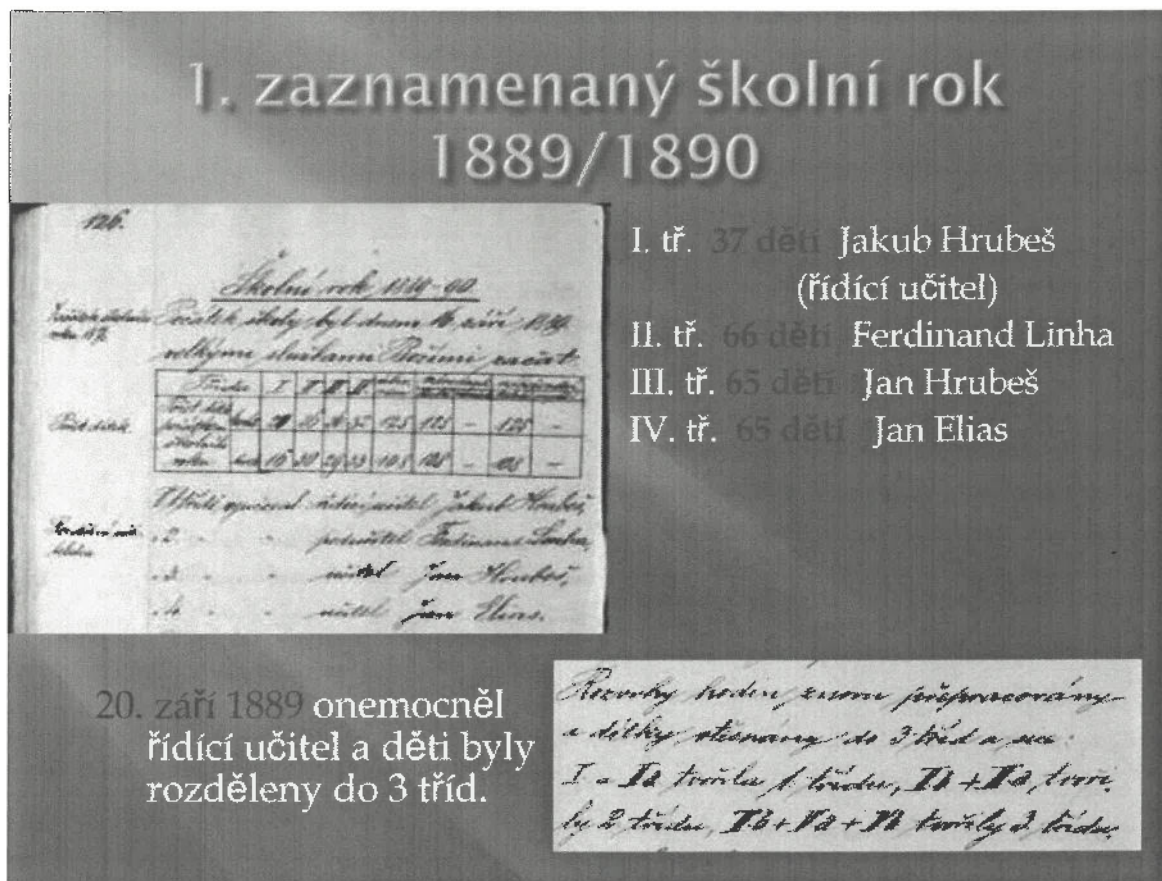 1. zaznamenaný školní rok
1889/1890
126.
Školní rok 1889-90.
Počátek školy byl dnem 16. září 1889
velkými službami Božími začat.
Třída I II III IV
Počet dítek.
školního
roku
řídící učitel Jakub Hrubeš,
2 podučitel Ferdinand Linha,
3 učitel Jan Hrubeš,
4 učitel Jan Elias.
I. tř. 37 dětí Jakub Hrubeš
(řídící učitel)
II. tř. 66 dětí Ferdinand Linha
III. tř. 65 dětí Jan Hrubeš
IV. tř. 65 dětí Jan Elias
20. září 1889 onemocněl
řídící učitel a děti byly
rozděleny do 3 tříd.
Rozvrhy hodin znovu přepracovány
a dítky do 3 tříd a
tvořila 1 třídu, tvoři-
ly 2 třídu, tvořily 3. třídu.